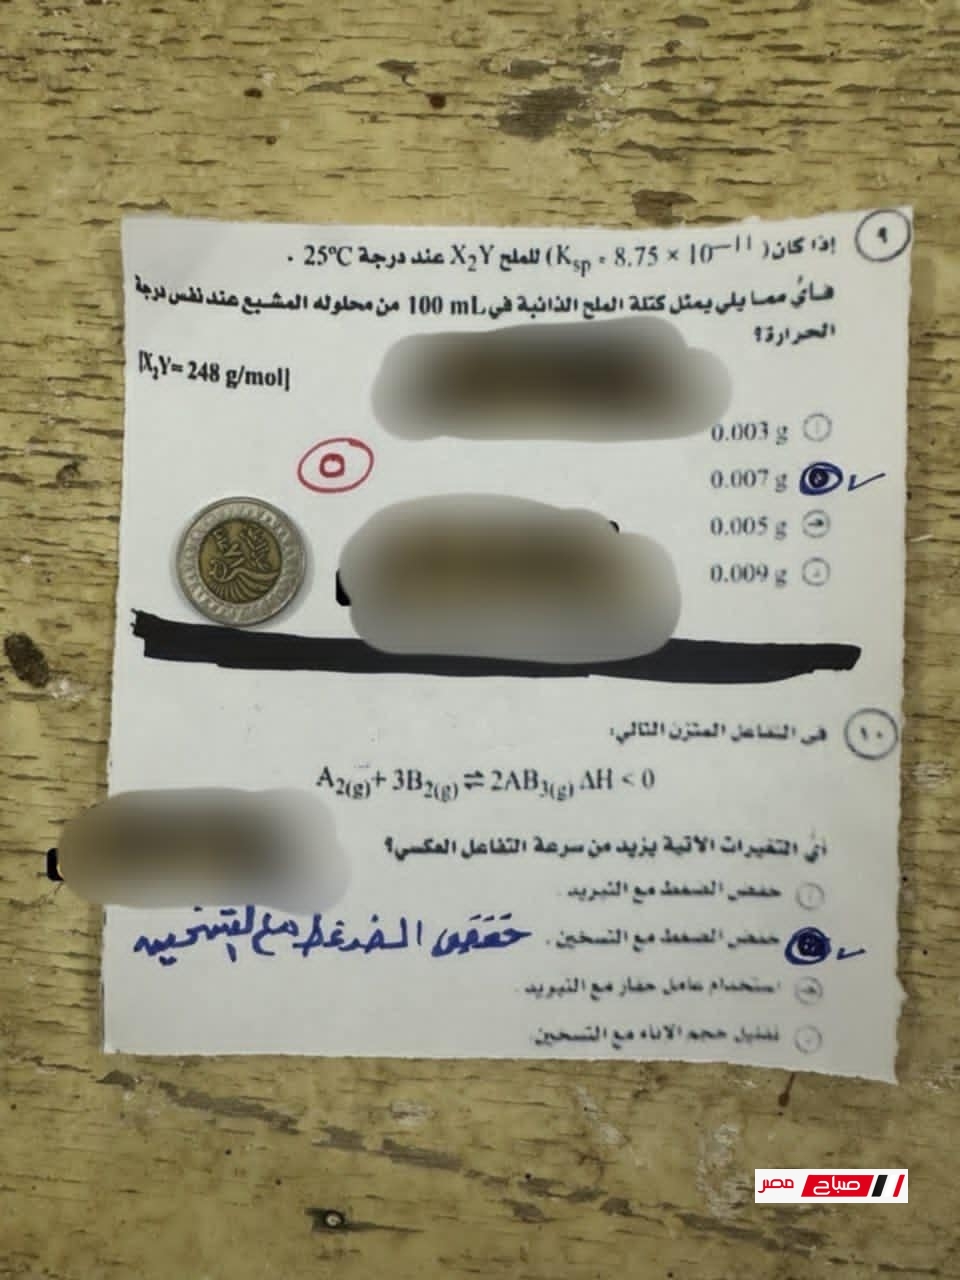 ٩
إذا كان (Ksp = 8.75 × 10⁻¹¹) للملح X₂Y عند درجة 25ºC .
فأي مما يلي يمثل كتلة الملح الذائبة في 100 mL من محلوله المشبع عند نفس درجة
الحرارة؟
[X₂Y= 248 g/mol]
أ 0.003 g
0.007 g
ج 0.005 g
د 0.009 g
٥
١٠
في التفاعل المتزن التالي:
A₂(g) + 3B₂(g) ⇌ 2AB₃(g) ΔH < 0
أي التغيرات الآتية يزيد من سرعة التفاعل العكسي؟
أ خفض الضغط مع التبريد .
خفض الضغط مع التسخين .
خفض الضغط مع التسخين
ج استخدام عامل حفاز مع التبريد .
د تقليل حجم الإناء مع التسخين.
صباح مصر